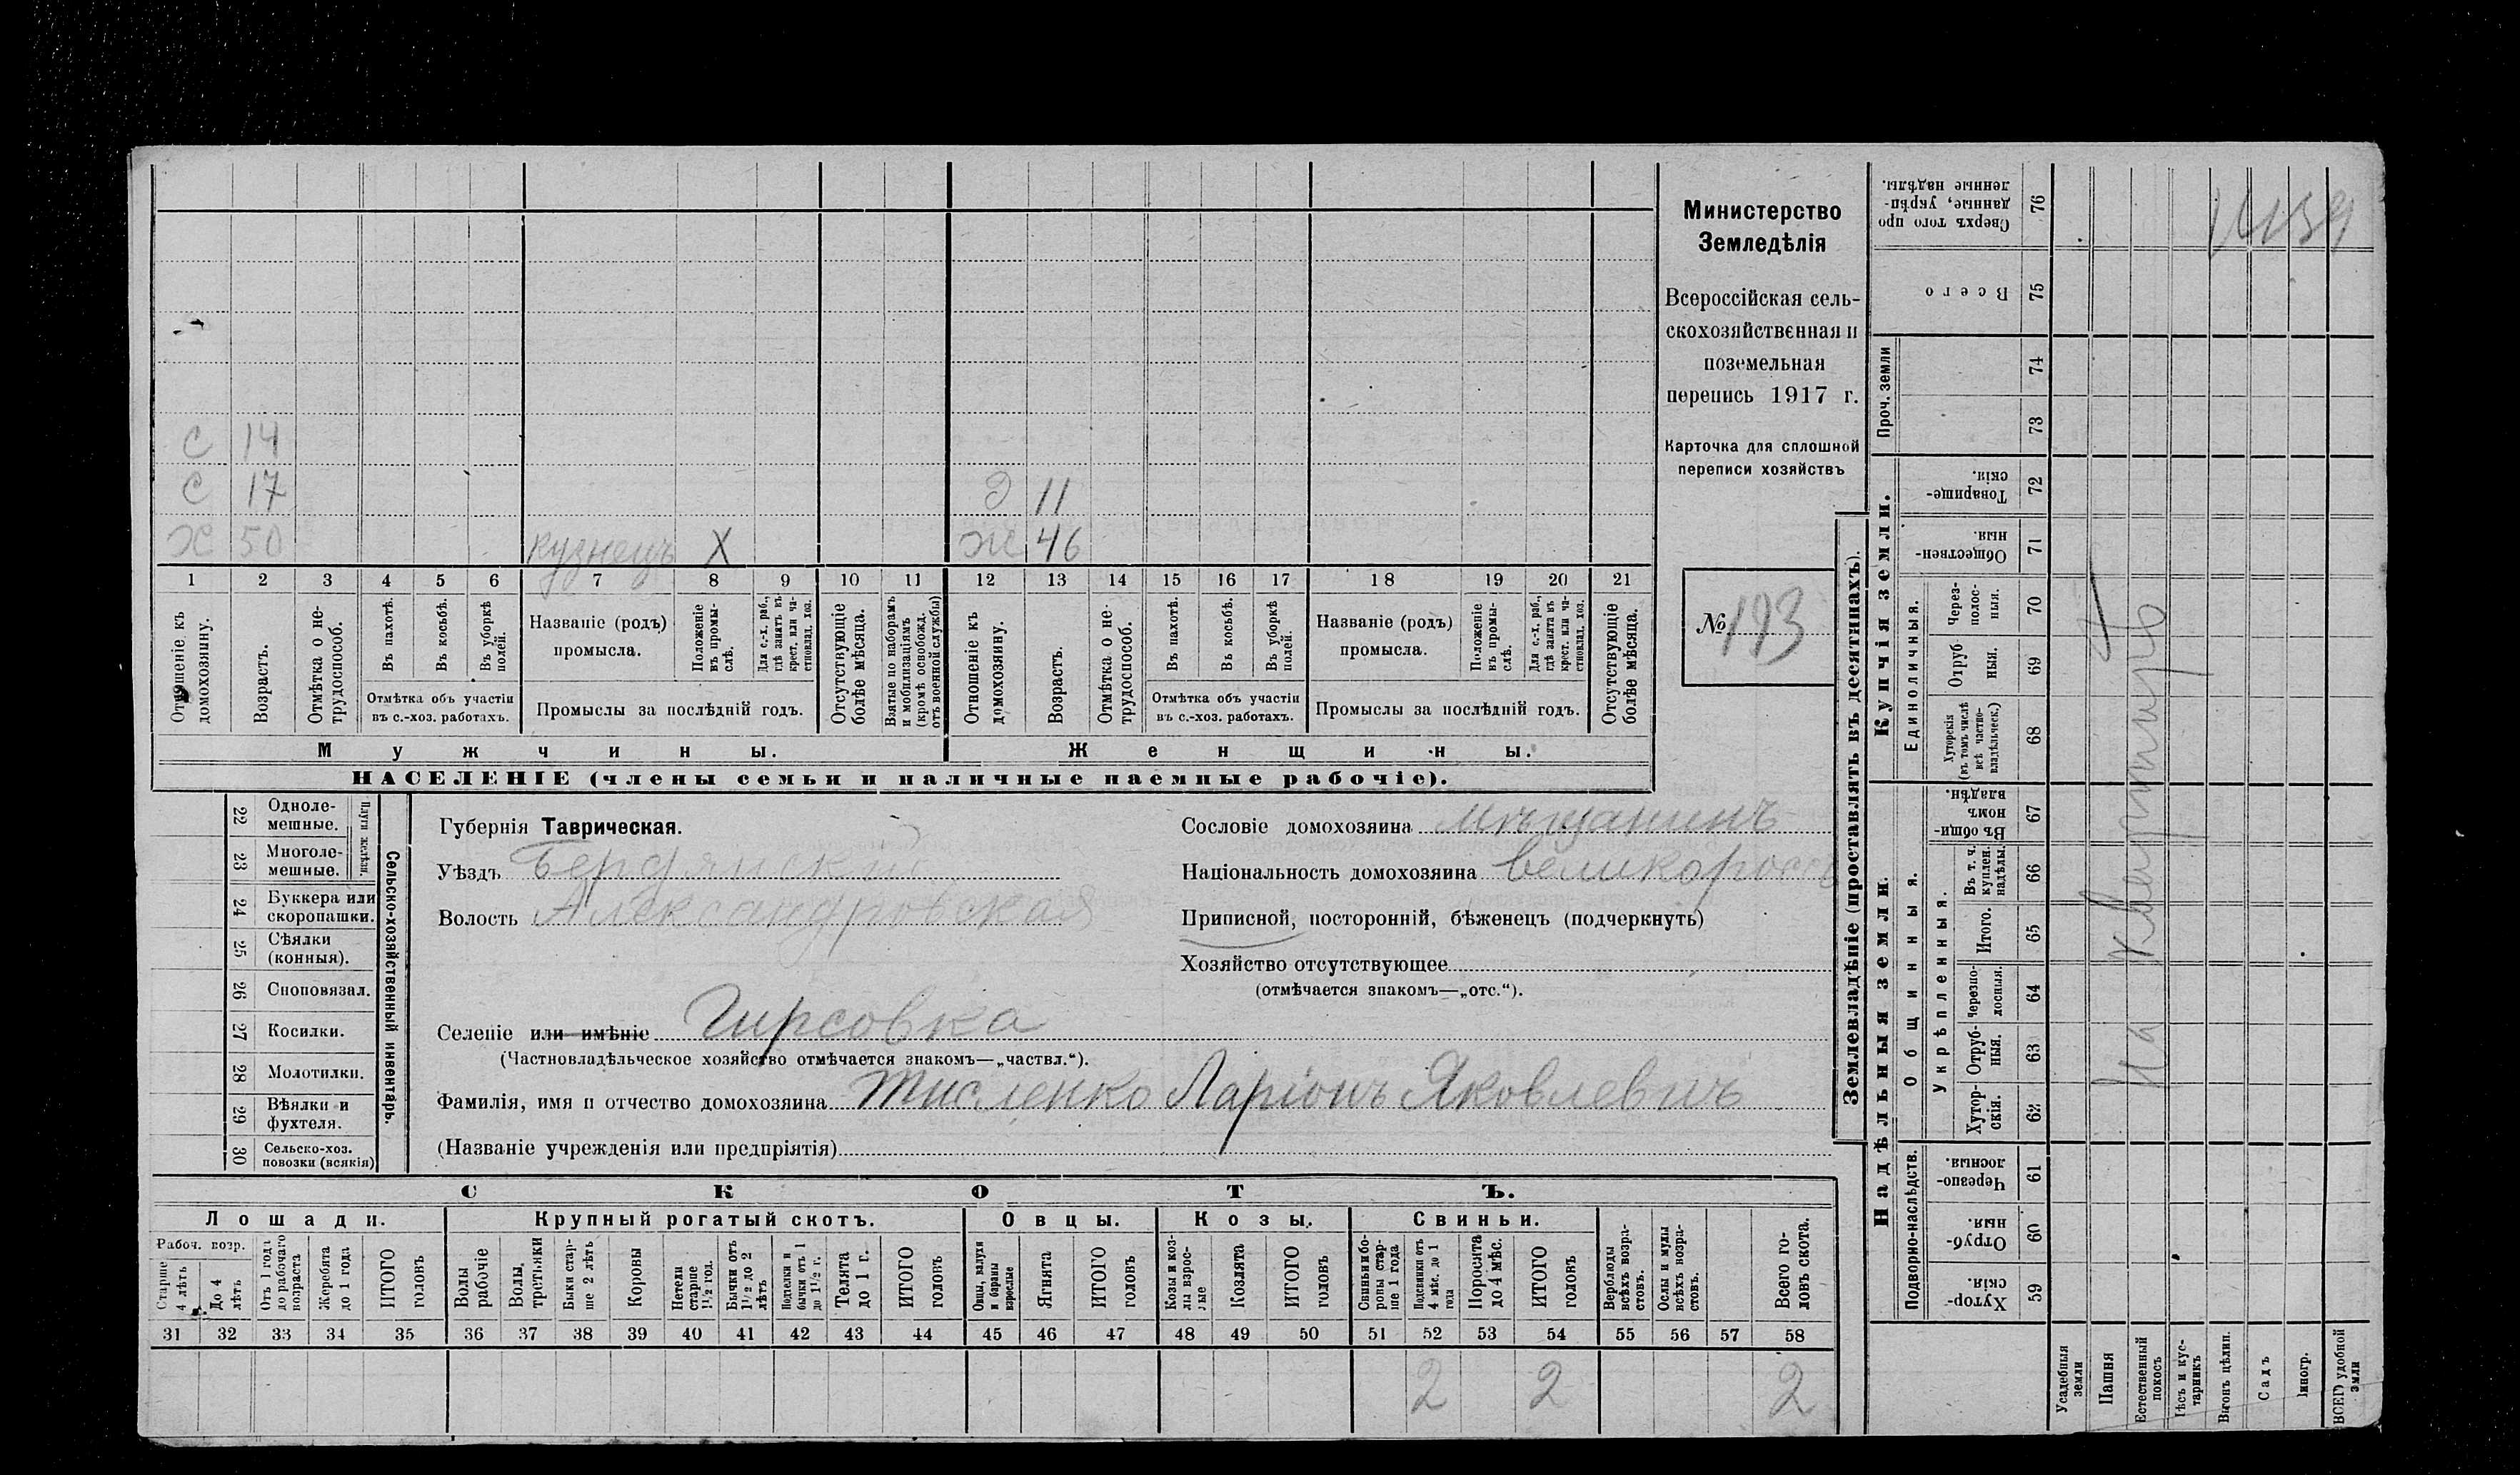 Министерство
Земледѣлія
Всероссійская сель-
скохозяйственная и
поземельная
перепись 1917 г.
Карточка для сплошной
переписи хозяйствъ
№ 193
С 14
С 17
Х 50 кузнецъ Х
Д 11
Ж 46
1 2 3 4 5 6 7 8 9 10 11 12 13 14 15 16 17 18 19 20 21
Отношеніе къ домохозяину.
Возрастъ.
Отмѣтка о не-трудоспособ.
Въ пахотѣ.
Въ косьбѣ.
Въ уборкѣ полей.
Отмѣтка объ участіи
въ с.-хоз. работахъ.
Названіе (родъ)
промысла.
Положеніе въ промы-слѣ.
Для с.-х. раб., гдѣ занятъ въ крест. или ча-стновлад. хоз.
Промыслы за послѣдній годъ.
Отсутствующіе болѣе мѣсяца.
Взятые по наборамъ и мобилизаціямъ (кромѣ освобожд. отъ военной службы)
Отношеніе къ домохозяину.
Возрастъ.
Отмѣтка о не-трудоспособ.
Въ пахотѣ.
Въ косьбѣ.
Въ уборкѣ полей.
Отмѣтка объ участіи
въ с.-хоз. работахъ.
Названіе (родъ)
промысла.
Положеніе въ промы-слѣ.
Для с.-х. раб., гдѣ занята въ крест. или ча-стновлад. хоз.
Промыслы за послѣдній годъ.
Отсутствующіе болѣе мѣсяца.
Мужчины.
Женщины.
НАСЕЛЕНІЕ (члены семьи и наличные наемные рабочіе).
22 Одноле-мешные.
23 Многоле-мешные.
Плуги желѣзн.
24 Буккера или скоропашки.
25 Сѣялки (конныя).
26 Сноповязал.
27 Косилки.
28 Молотилки.
29 Вѣялки и фухтеля.
30 Сельско-хоз. повозки (всякія)
Сельско-хозяйственный инвентарь.
Губернія Таврическая.
Уѣздъ Бердянскій
Волость Александровская
Селеніе или имѣніе Гирсовка
(Частновладѣльческое хозяйство отмѣчается знакомъ—„частвл.“).
Фамилія, имя и отчество домохозяина Тисленко Ларіонъ Яковлевичъ
(Названіе учрежденія или предпріятія)
Сословіе домохозяина мѣщанинъ
Національность домохозяина великороссъ
Приписной, посторонній, бѣженецъ (подчеркнуть)
Хозяйство отсутствующее
(отмѣчается знакомъ—„отс.“).
СКОТЪ.
Лошади.
Крупный рогатый скотъ.
Овцы.
Козы.
Свиньи.
Рабоч. возр.
Старше 4 лѣтъ
До 4 лѣтъ
Отъ 1 года до рабочаго возраста
Жеребята до 1 года
ИТОГО головъ
Волы рабочіе
Волы, третьяки
Быки стар-ше 2 лѣтъ
Коровы
Нетели старше 1½ год.
Бычки отъ 1½ до 2 лѣтъ
Подтелки и бычки отъ 1 до 1½ г.
Телята до 1 г.
ИТОГО головъ
Овцы, валухи и бараны взрослые
Ягнята
ИТОГО головъ
Козы и коз-лы взрос-лые
Козлята
ИТОГО головъ
Свиньи и бо-ровы стар-ше 1 года
Подсвинки отъ 4 мѣс. до 1 года
Поросята до 4 мѣс.
ИТОГО головъ
Верблюды всѣхъ возра-стовъ.
Ослы и мулы всѣхъ возра-стовъ.
Всего го-ловъ скота.
31 32 33 34 35 36 37 38 39 40 41 42 43 44 45 46 47 48 49 50 51 52 53 54 55 56 57 58
2 2 2
Землевладѣніе (проставлять въ десятинахъ).
Надѣльныя земли.
Купчія земли.
Проч. земли
Подворно-наслѣдств.
Общинныя.
Укрѣпленныя.
Единоличныя.
76 Сверхъ того про-данные, укрѣп-ленные надѣлы.
75 Всего
74
73
72 Товарище-скія.
71 Обществен-ныя.
70 Через-полос-ныя.
69 Отруб-ныя.
68 Хуторскія (въ томъ числѣ всѣ частно-владѣльческ.)
67 Въ общин-номъ владѣн.
66 Въ т. ч. куплен. надѣлы.
65 Итого.
64 Черезпо-лосныя.
63 Отруб-ныя.
62 Хутор-скія.
61 Черезпо-лосныя.
60 Отруб-ныя.
59 Хутор-скія.
Усадебныя земли
Пашня
Естественный покосъ
Лѣсъ и кус-тарникъ
Выгонъ цѣлин.
Садъ
Виногр.
ВСЕГО удобной земли
На квартирѣ